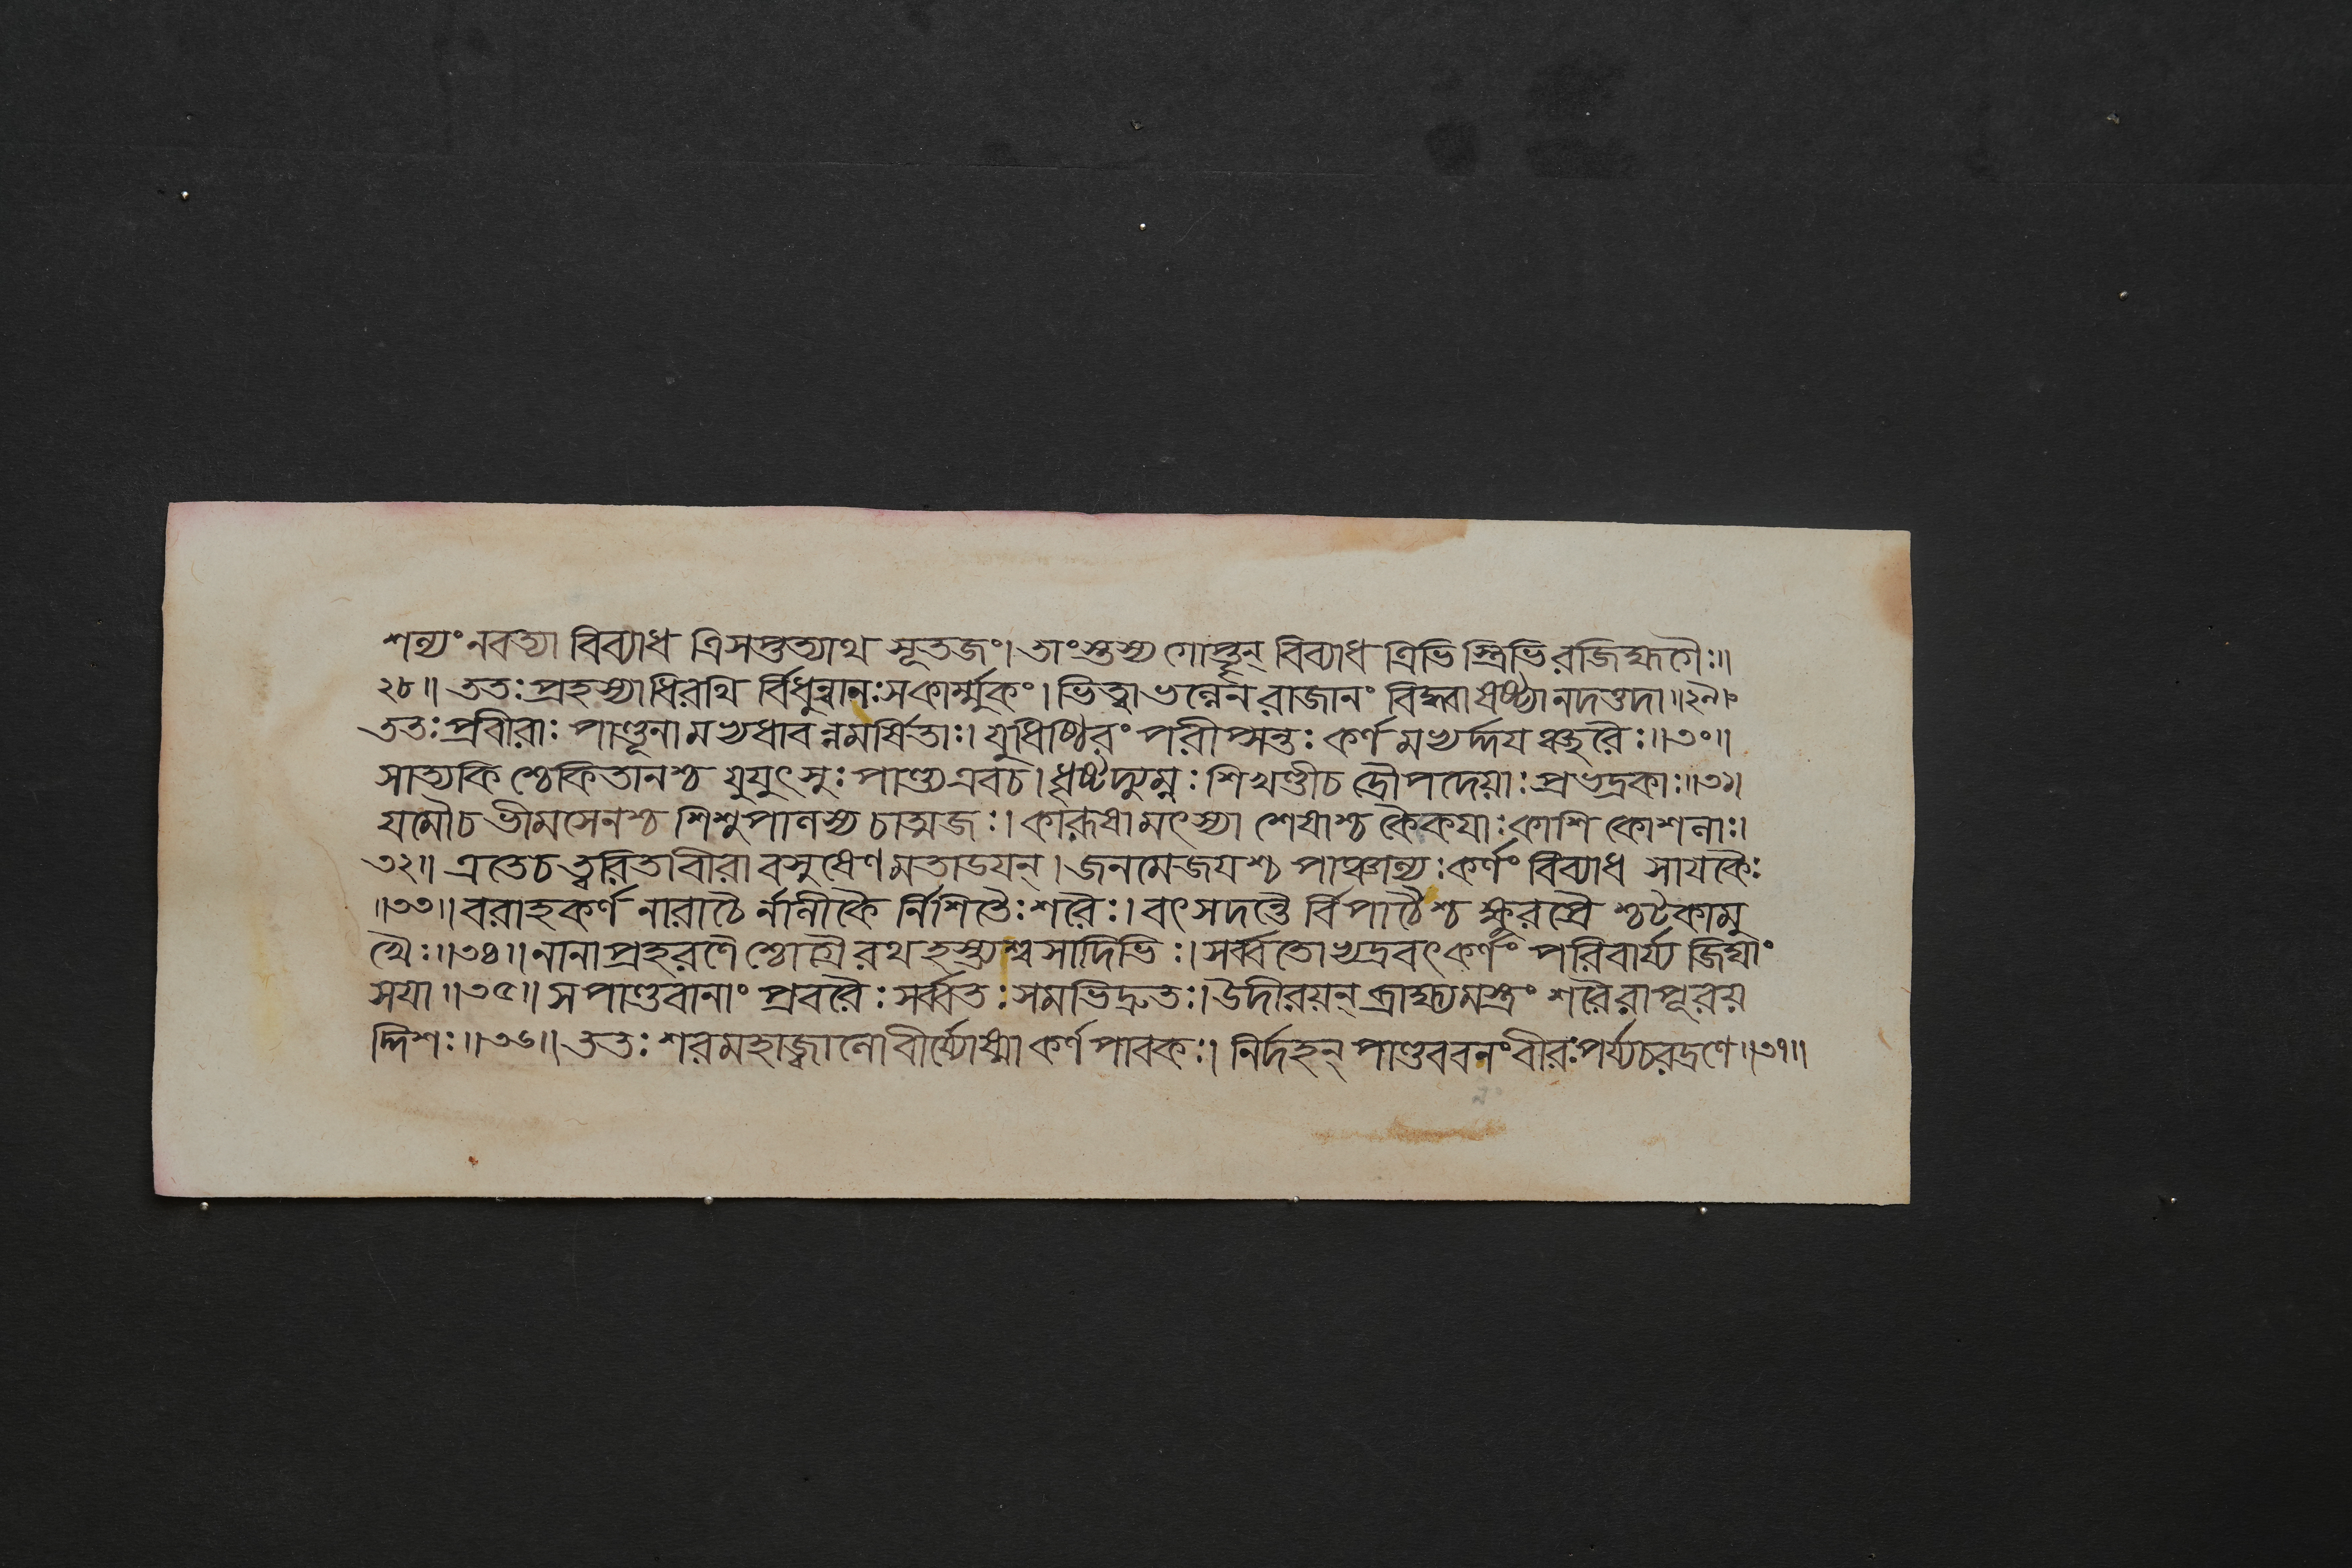 শল্যং নবত্যা বিব্যাধ ত্রিসপ্তত্যাথ সূতজং। তাংস্তস্য গোপ্তৃন্ বিব্যাধ ত্রিভি স্ত্রিভি রজিহ্মগৈঃ॥
২৮॥ ততঃ প্রহস্যাধিরথি র্বিধুন্বানঃ সকার্ম্মুকং। ভিত্বা ভল্লেন রাজানং বিদ্ধ্বা ষষ্ঠ্যানদত্তদা॥২৯॥
ততঃ প্রবীরাঃ পাণ্ডূনা মভ্যধাবন্নমর্ষিতাঃ। যুধিষ্ঠিরং পরীপ্সন্তঃ কর্ণ মভ্যর্দ্দয ঞ্ছরৈঃ॥৩০॥
সাত্যকি শ্চেকিতানশ্চ যুযুৎসুঃ পাণ্ড্য এবচ। ধৃষ্টদ্যুম্নঃ শিখণ্ডীচ দ্রৌপদেয়াঃ প্রভদ্রকাঃ॥৩১।
যমৌচ ভীমসেনশ্চ শিশুপালস্য চাত্মজঃ। কারূষা মৎস্যা শেষাশ্চ কৈকযাঃ কাশি কোশলাঃ।
৩২॥ এতেচ ত্বরিতা বীরা বসুষেণ মতাডযন্। জনমেজযশ্চ পাঞ্চাল্যঃ কর্ণং বিব্যাধ সাযকৈঃ
॥৩৩॥ বরাহকর্ণ নারাচৈ র্নালীকৈ র্নিশিতৈঃ শরৈঃ। বৎসদন্তৈ র্বিপাঠৈশ্চ ক্ষুরপ্রৈ শ্চটকামু
খৈঃ॥৩৪॥ নানাপ্রহরণৈ শ্চোগ্রৈ রথহস্ত্যশ্বসাদিভিঃ। সর্ব্বতোভ্যদ্রবৎ কর্ণং পরিবার্য্য জিঘাং
সযা॥৩৫॥ স পাণ্ডবানাং প্রবরৈঃ সর্ব্বতঃ সমভিদ্রুতঃ। উদীরয়ন্ ব্রাহ্ম্যমস্ত্রং শরৈরাপূরয়
দ্দিশঃ॥৩৬॥ ততঃ শরমহাজ্বালো বীর্য্যোষ্মা কর্ণপাবকঃ। নির্দহন্ পাণ্ডববনং বীরঃ পর্য্যচরদ্রণে॥৩৭॥